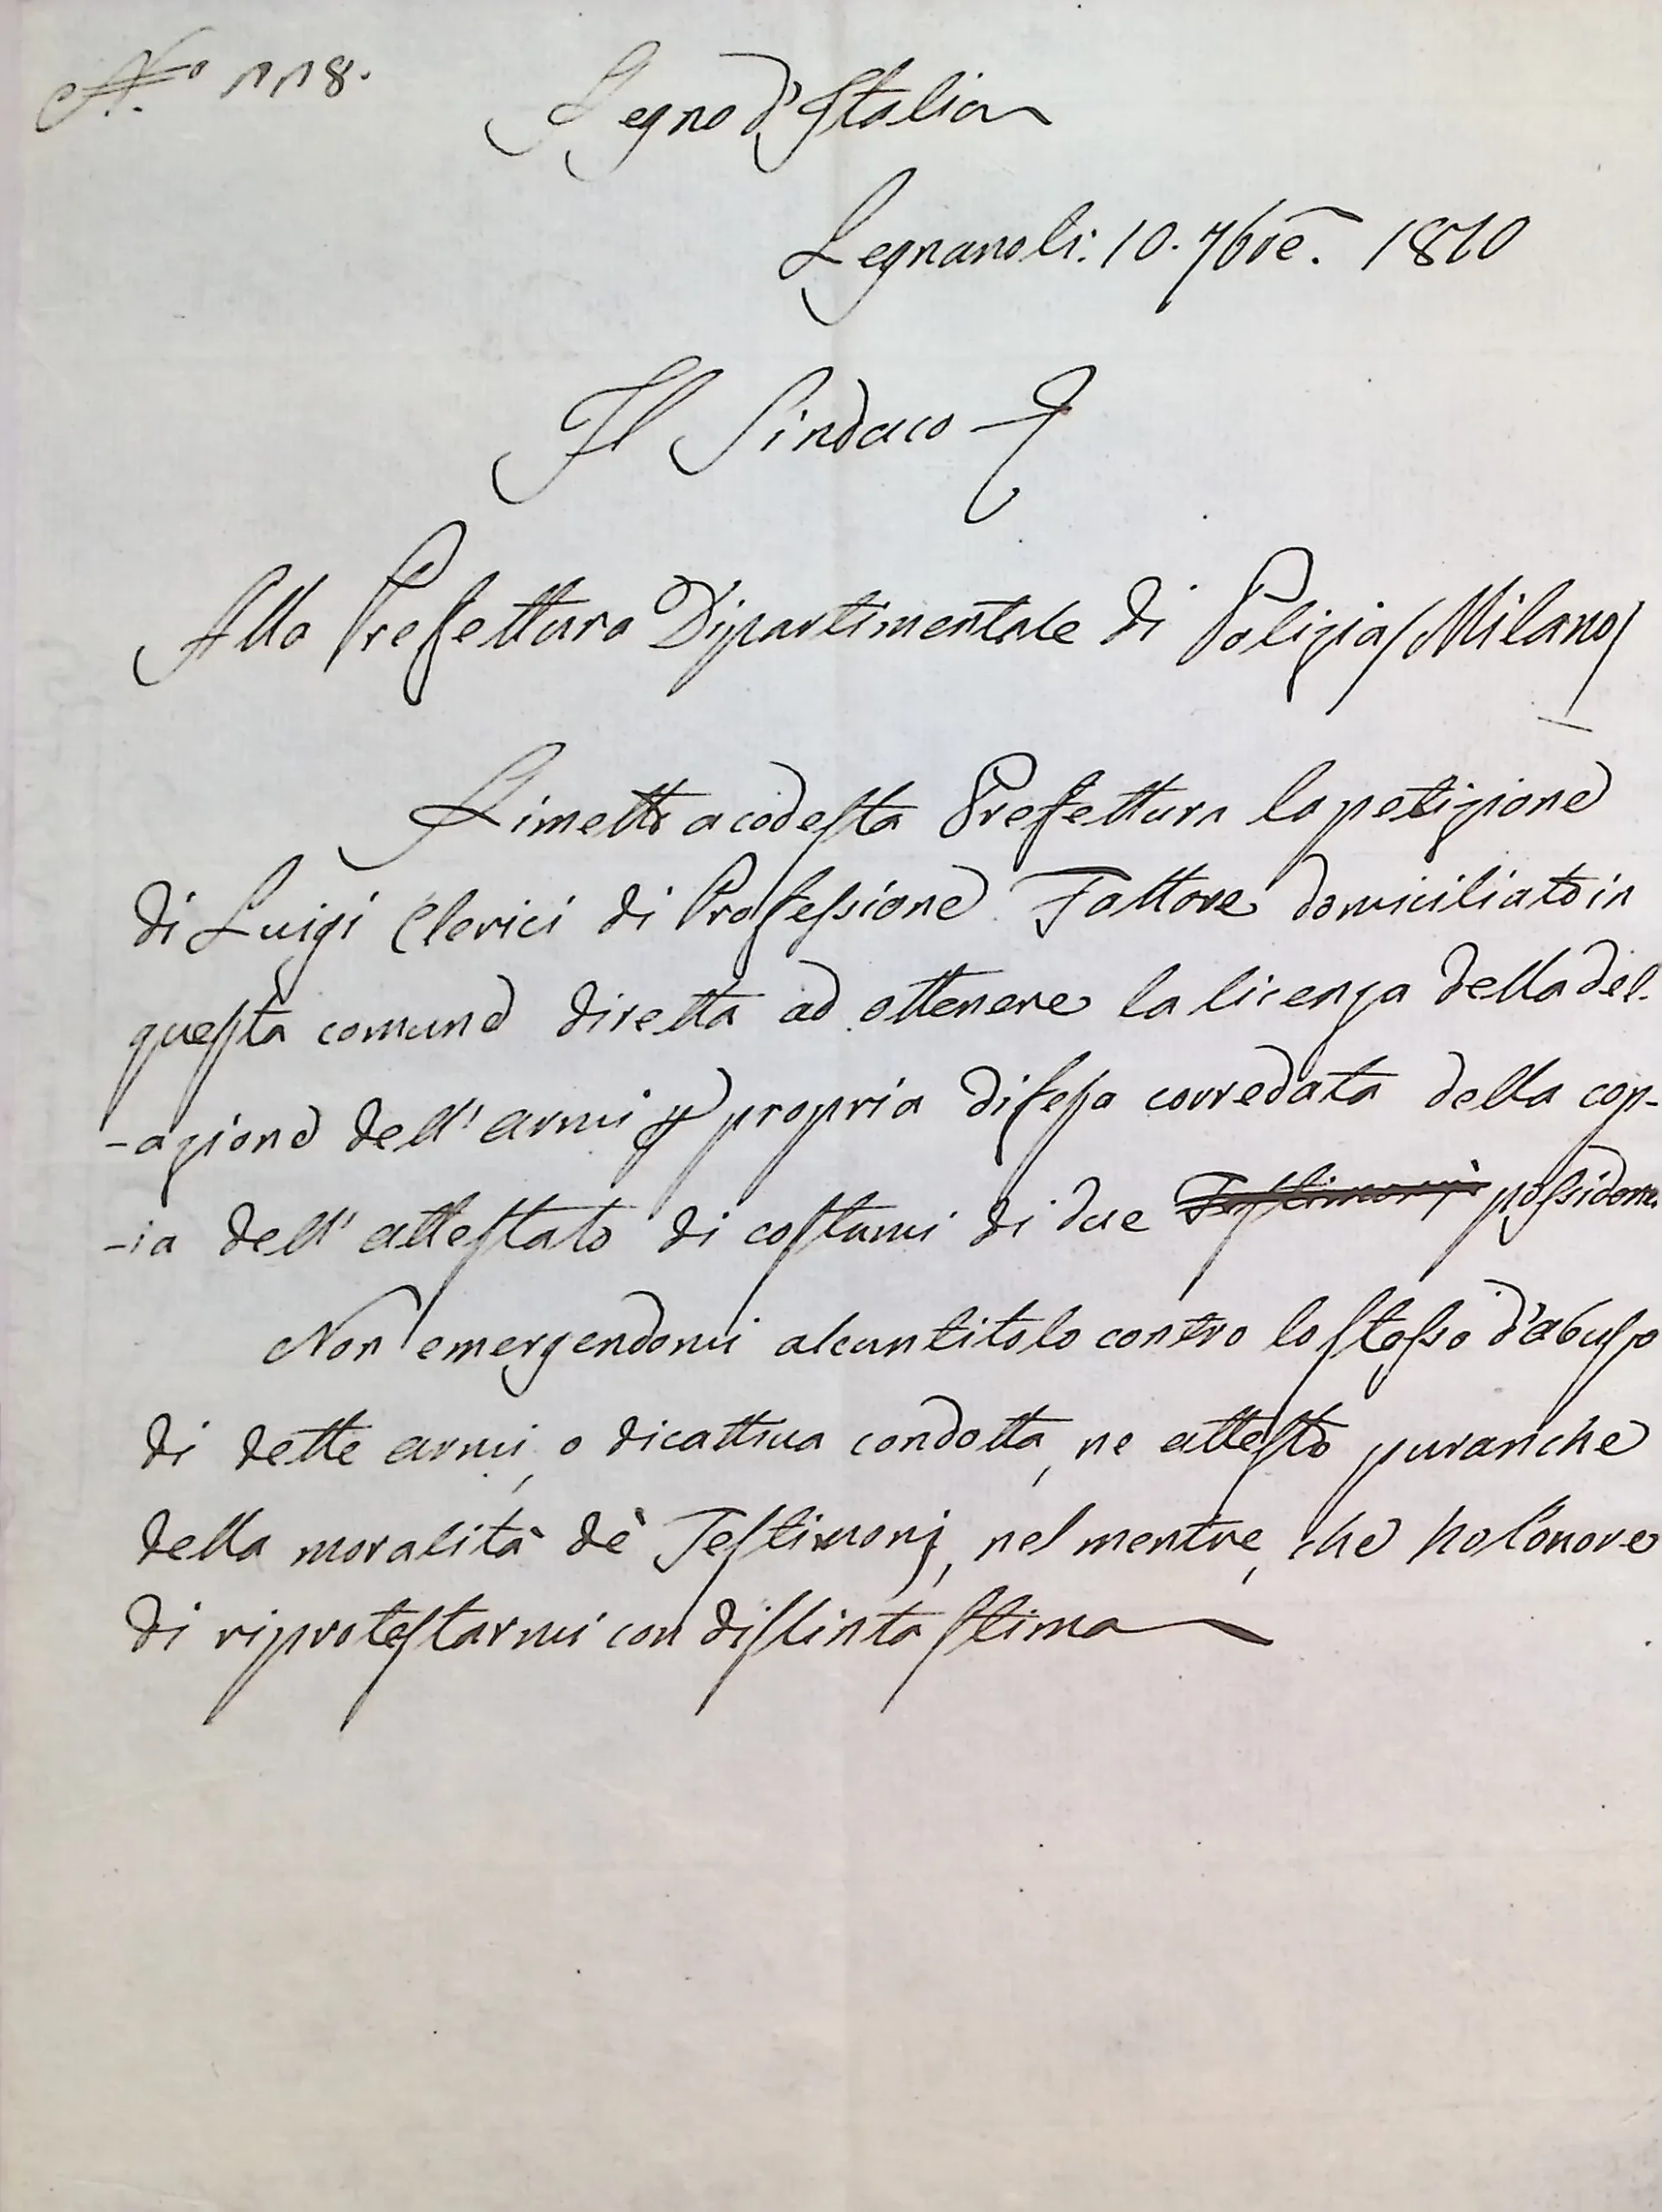 N.º 118.
Regno d'Italia
Legnano li: 10. 7bre. 1810
Il Sindaco
Alla Prefettura Dipartimentale di Polizia /Milano/
Rimetto a codesta Prefettura la petizione
di Luigi Clerici di Professione Fattore domiciliato in
questa comune diretta ad ottenere la licenza della del-
-azione dell'armi p propria difesa corredata della cop-
-ia dell'attestato di costumi di due Testimonj possidenti
Non emergendomi alcun titolo contro lo stesso d'abuso
di dette armi, o di cattiva condotta, ne attesto pur anche
della moralità de' Testimonj, nel mentre, che ho l'onore
di riprotestarmi con distinta stima